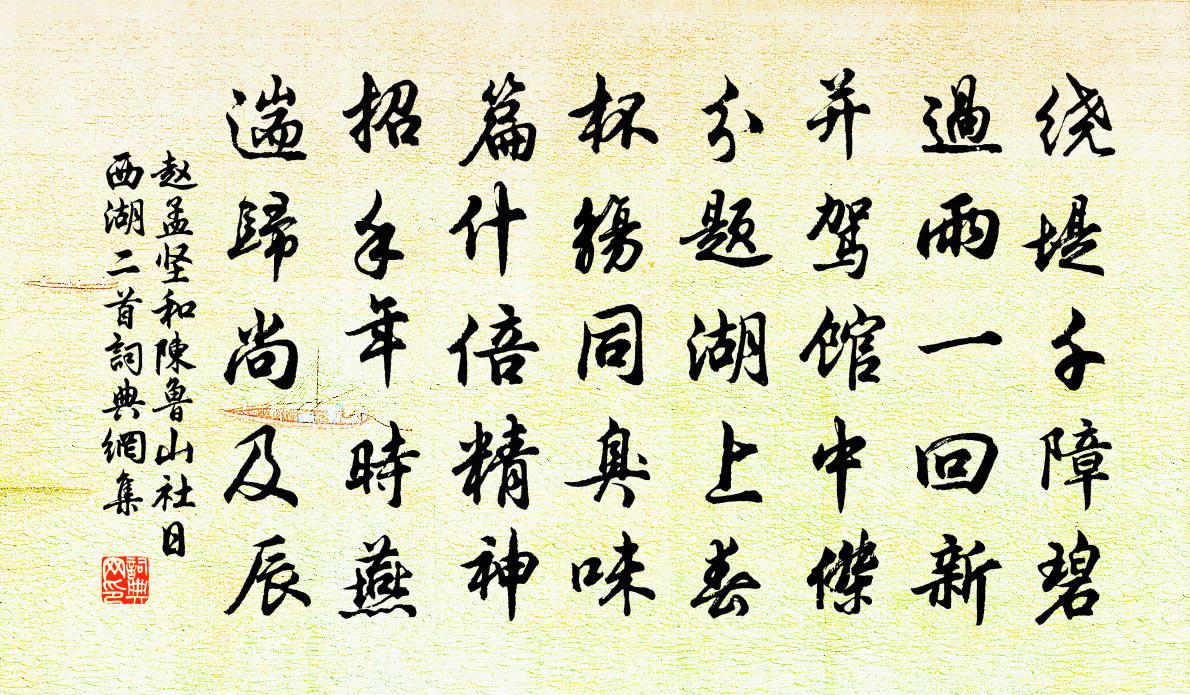 绕堤千障碧
過雨一回新
并駕馆中傑
分题湖上春
杯觴同臭味
篇什倍精神
招手年時燕
遄歸尚及辰
赵孟坚和陳魯山社日
西湖二首詞典網集
詞典网印